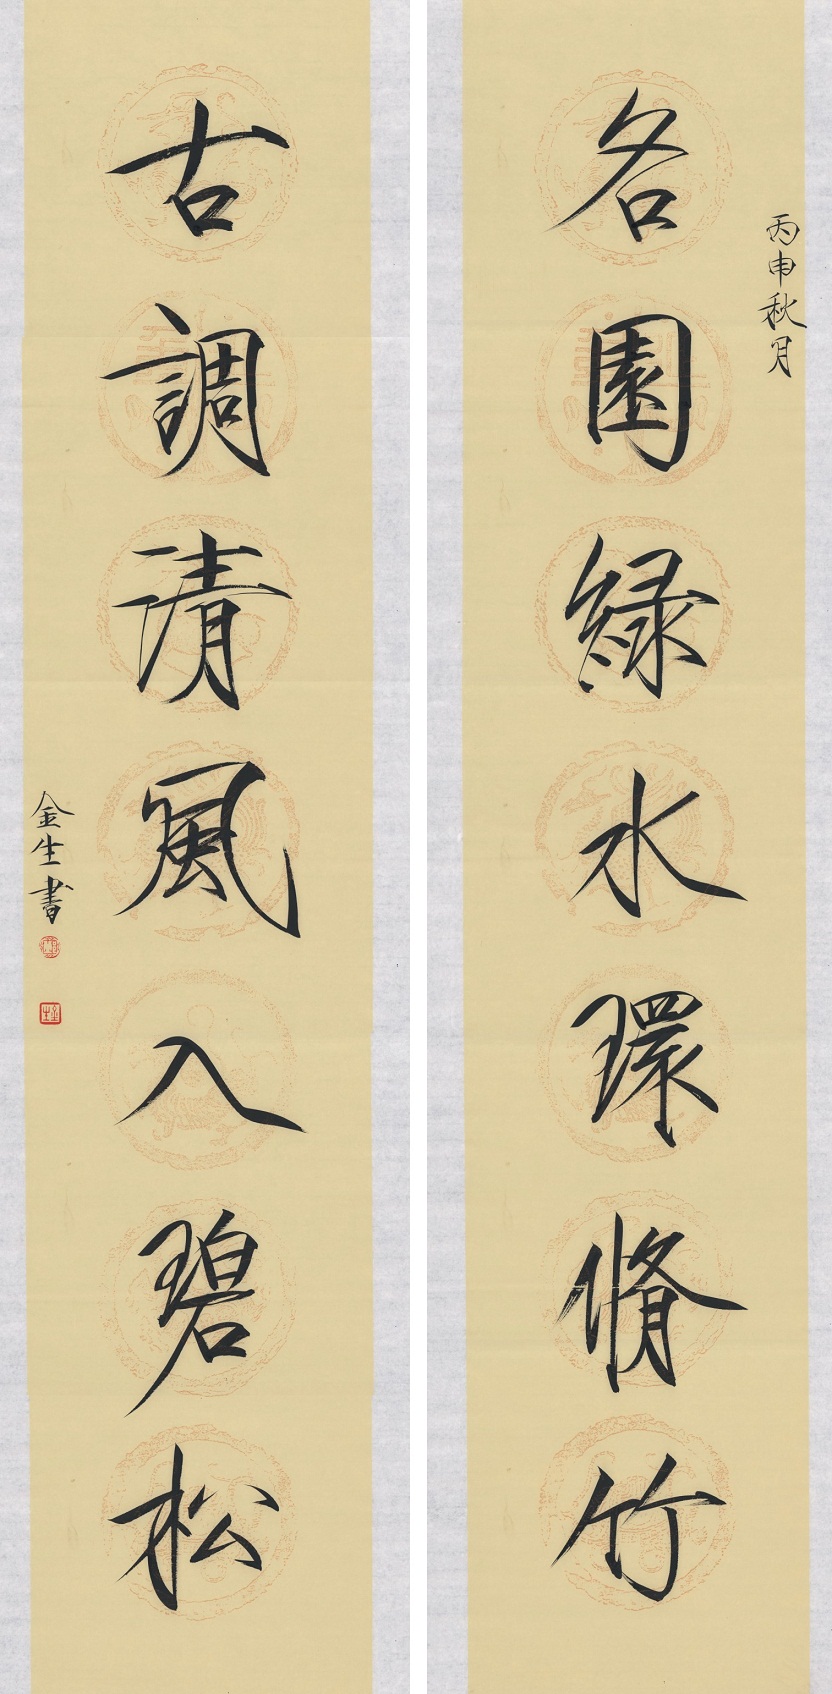 丙申秋月
名園綠水環脩竹
古調清風入碧松
金生書